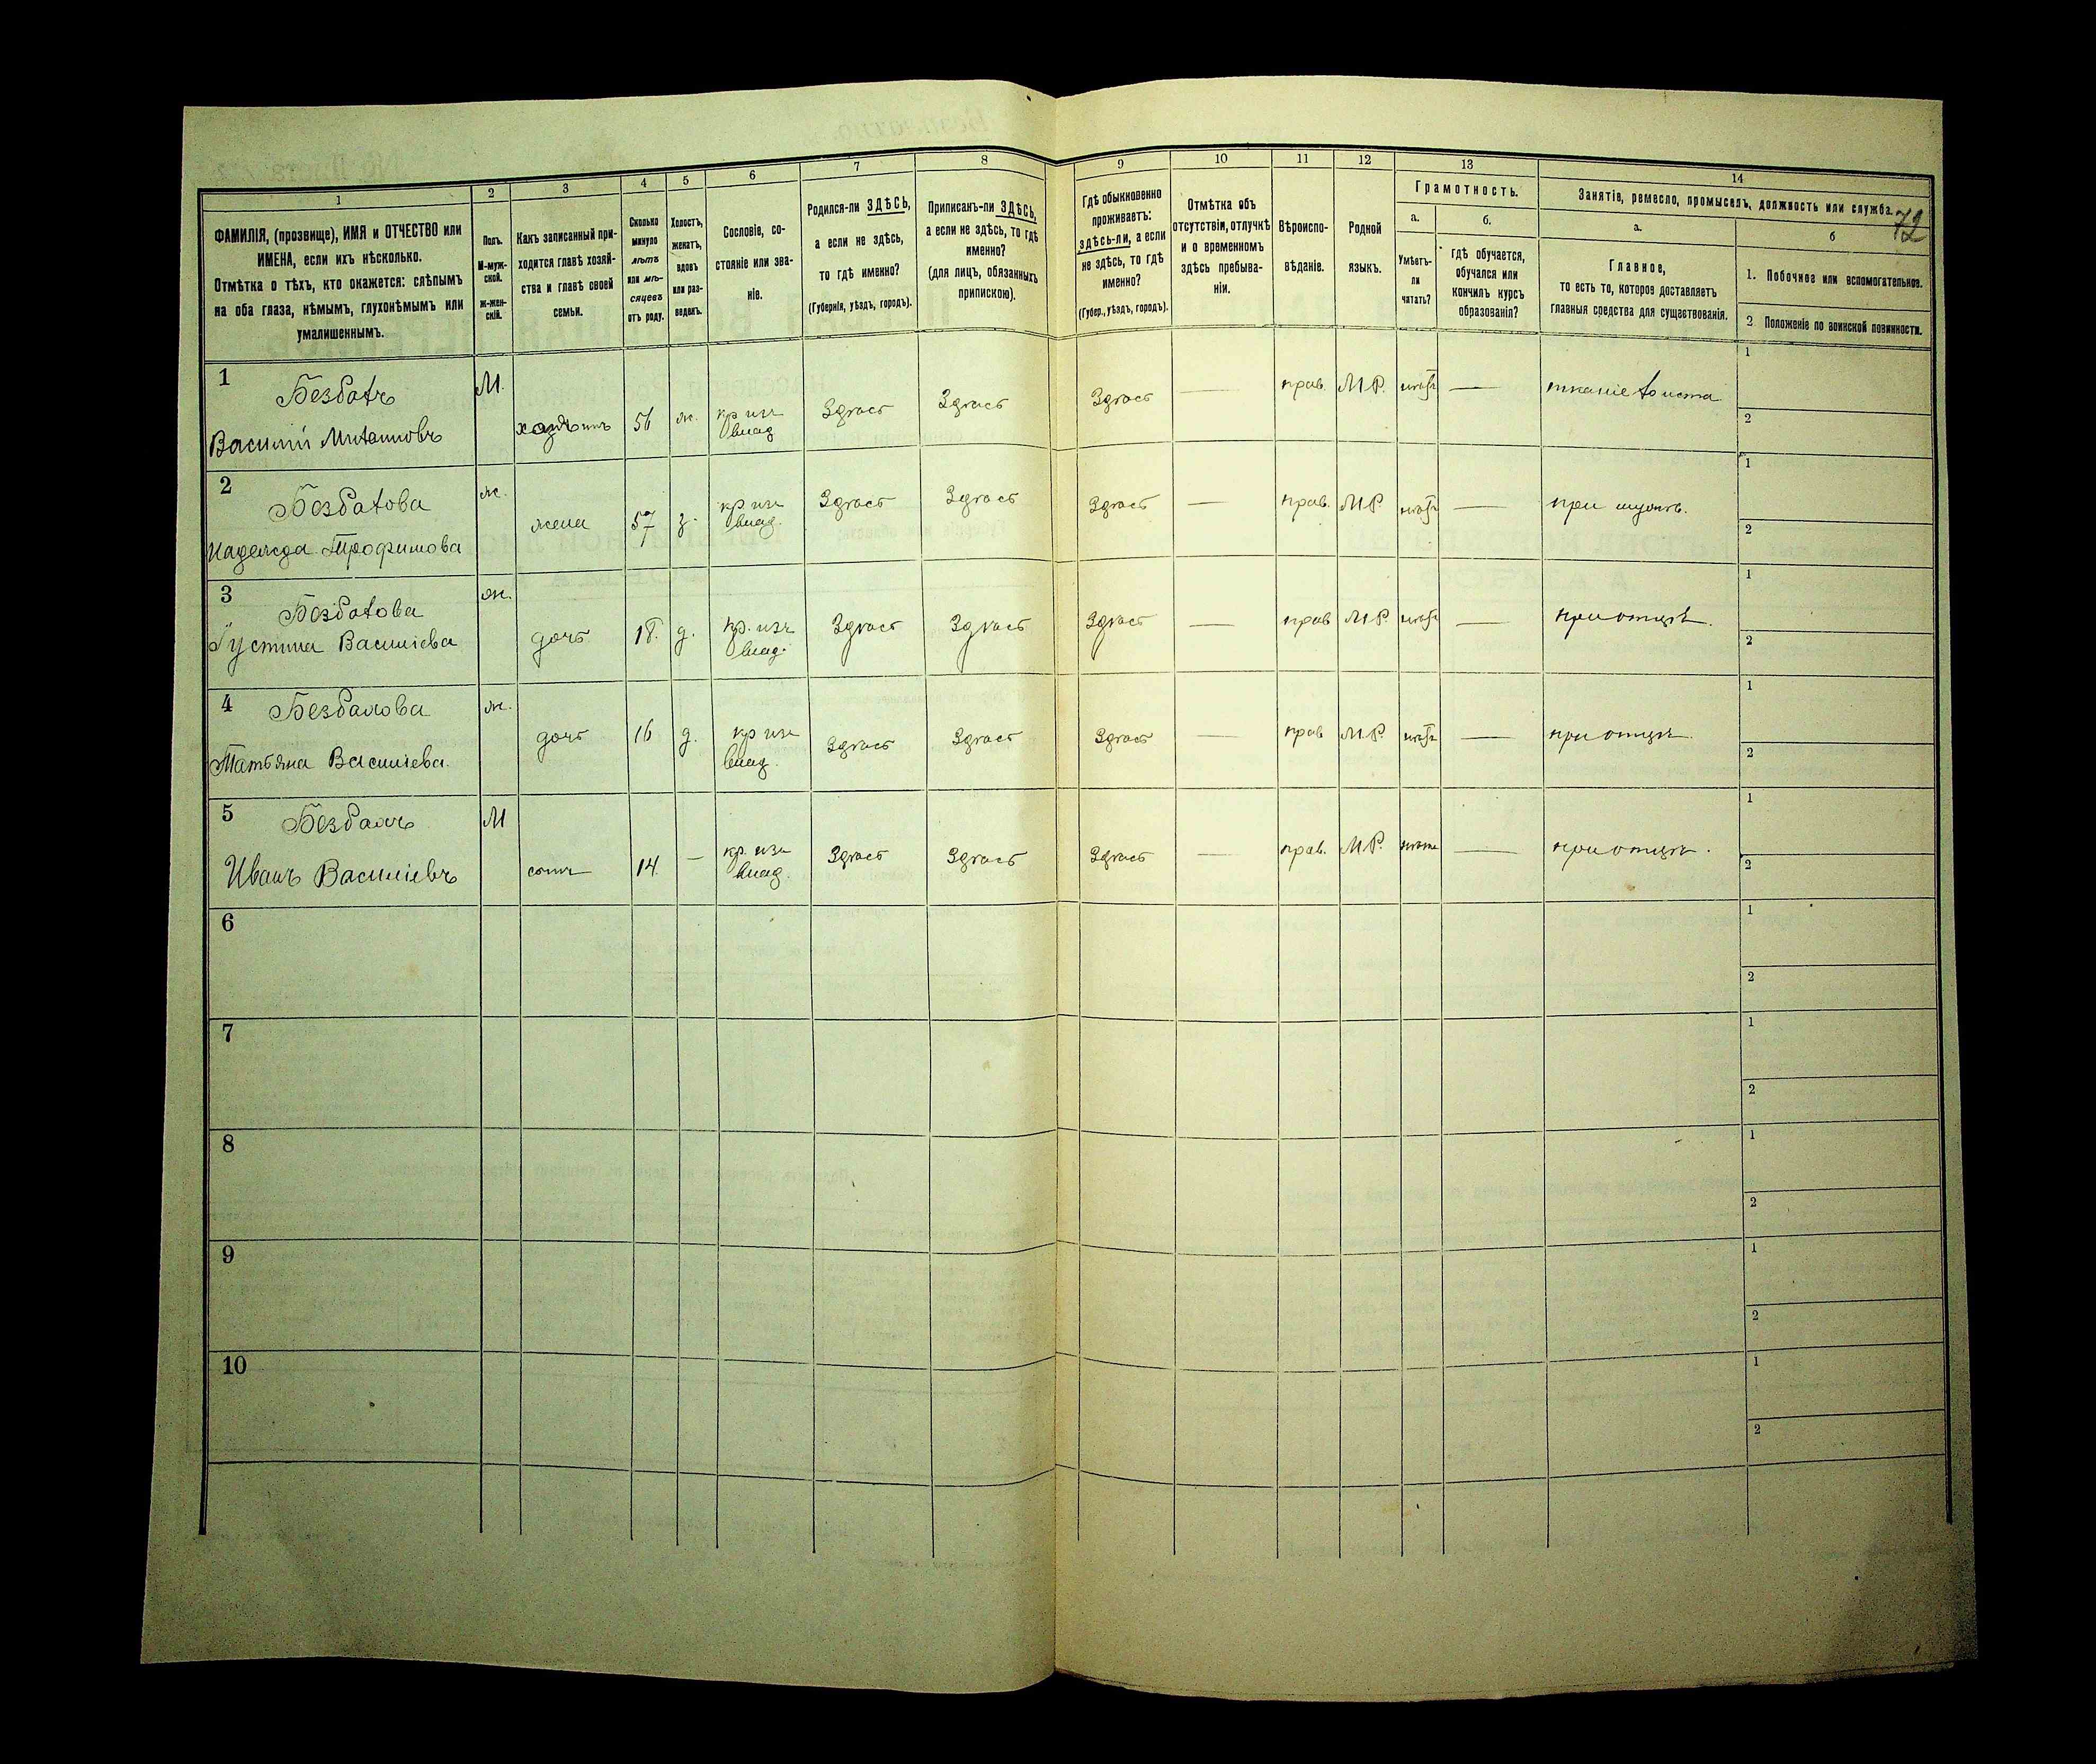 72
1
2
3
4
5
6
7
8
9
10
11
12
13
14
ФАМИЛІЯ, (прозвище), ИМЯ и ОТЧЕСТВО или
ИМЕНА, если ихъ нѣсколько.
Отмѣтка о тѣхъ, кто окажется: слѣпымъ
на оба глаза, нѣмымъ, глухонѣмымъ или
умалишеннымъ.
Полъ.
М-муж-
ской.
Ж-жен-
скій.
Какъ записанный при-
ходится главѣ хозяй-
ства и главѣ своей
семьи.
Сколько
минуло
лѣтъ
или мѣ-
сяцевъ
отъ роду.
Холостъ,
женатъ,
вдовъ
или раз-
веденъ.
Сословіе, со-
стояніе или зва-
ніе.
Родился-ли ЗДѢСЬ,
а если не здѣсь,
то гдѣ именно?
(Губернія, уѣздъ, городъ).
Приписанъ-ли ЗДѢСЬ,
а если не здѣсь, то гдѣ
именно?
(для лицъ, обязанныхъ
припискою).
Гдѣ обыкновенно
проживаетъ:
здѣсь-ли, а если
не здѣсь, то гдѣ
именно?
(Губер., уѣздъ, городъ).
Отмѣтка объ
отсутствіи, отлучкѣ
и о временномъ
здѣсь пребыва-
ніи.
Вѣроиспо-
вѣданіе.
Родной
языкъ.
Грамотность.
а.
Умѣетъ-
ли
читать?
б.
Гдѣ обучается,
обучался или
кончилъ курсъ
образованія?
Занятіе, ремесло, промыселъ, должность или служба.
а.
Главное,
то есть то, которое доставляетъ
главныя средства для существованія.
б
1. Побочное или вспомогательное.
2 Положеніе по воинской повинности.
1
М.
Василій
хозяинъ 56 ж. кр. изъ влад. Здѣсь Здѣсь Здѣсь — прав. М.Р. — тканіе холста
1
2
2
ж.
Надежда Трофимова
жена 57 з. кр. изъ влад. Здѣсь Здѣсь Здѣсь — прав. М.Р. — при мужѣ.
1
2
3
ж.
Густина Василіева
дочь 18. д. кр. изъ влад. Здѣсь Здѣсь Здѣсь — прав М.Р. — при отцѣ.
1
2
4
ж.
Татьяна Василіева.
дочь 16 д. кр изъ влад. Здѣсь Здѣсь Здѣсь — прав М.Р. — при отцѣ.
1
2
5
М
Иванъ Василіевъ
сынъ 14. — кр. изъ влад. Здѣсь Здѣсь Здѣсь — прав. М.Р. — при отцѣ.
1
2
6
1
2
7
1
2
8
1
2
9
1
2
10
1
2